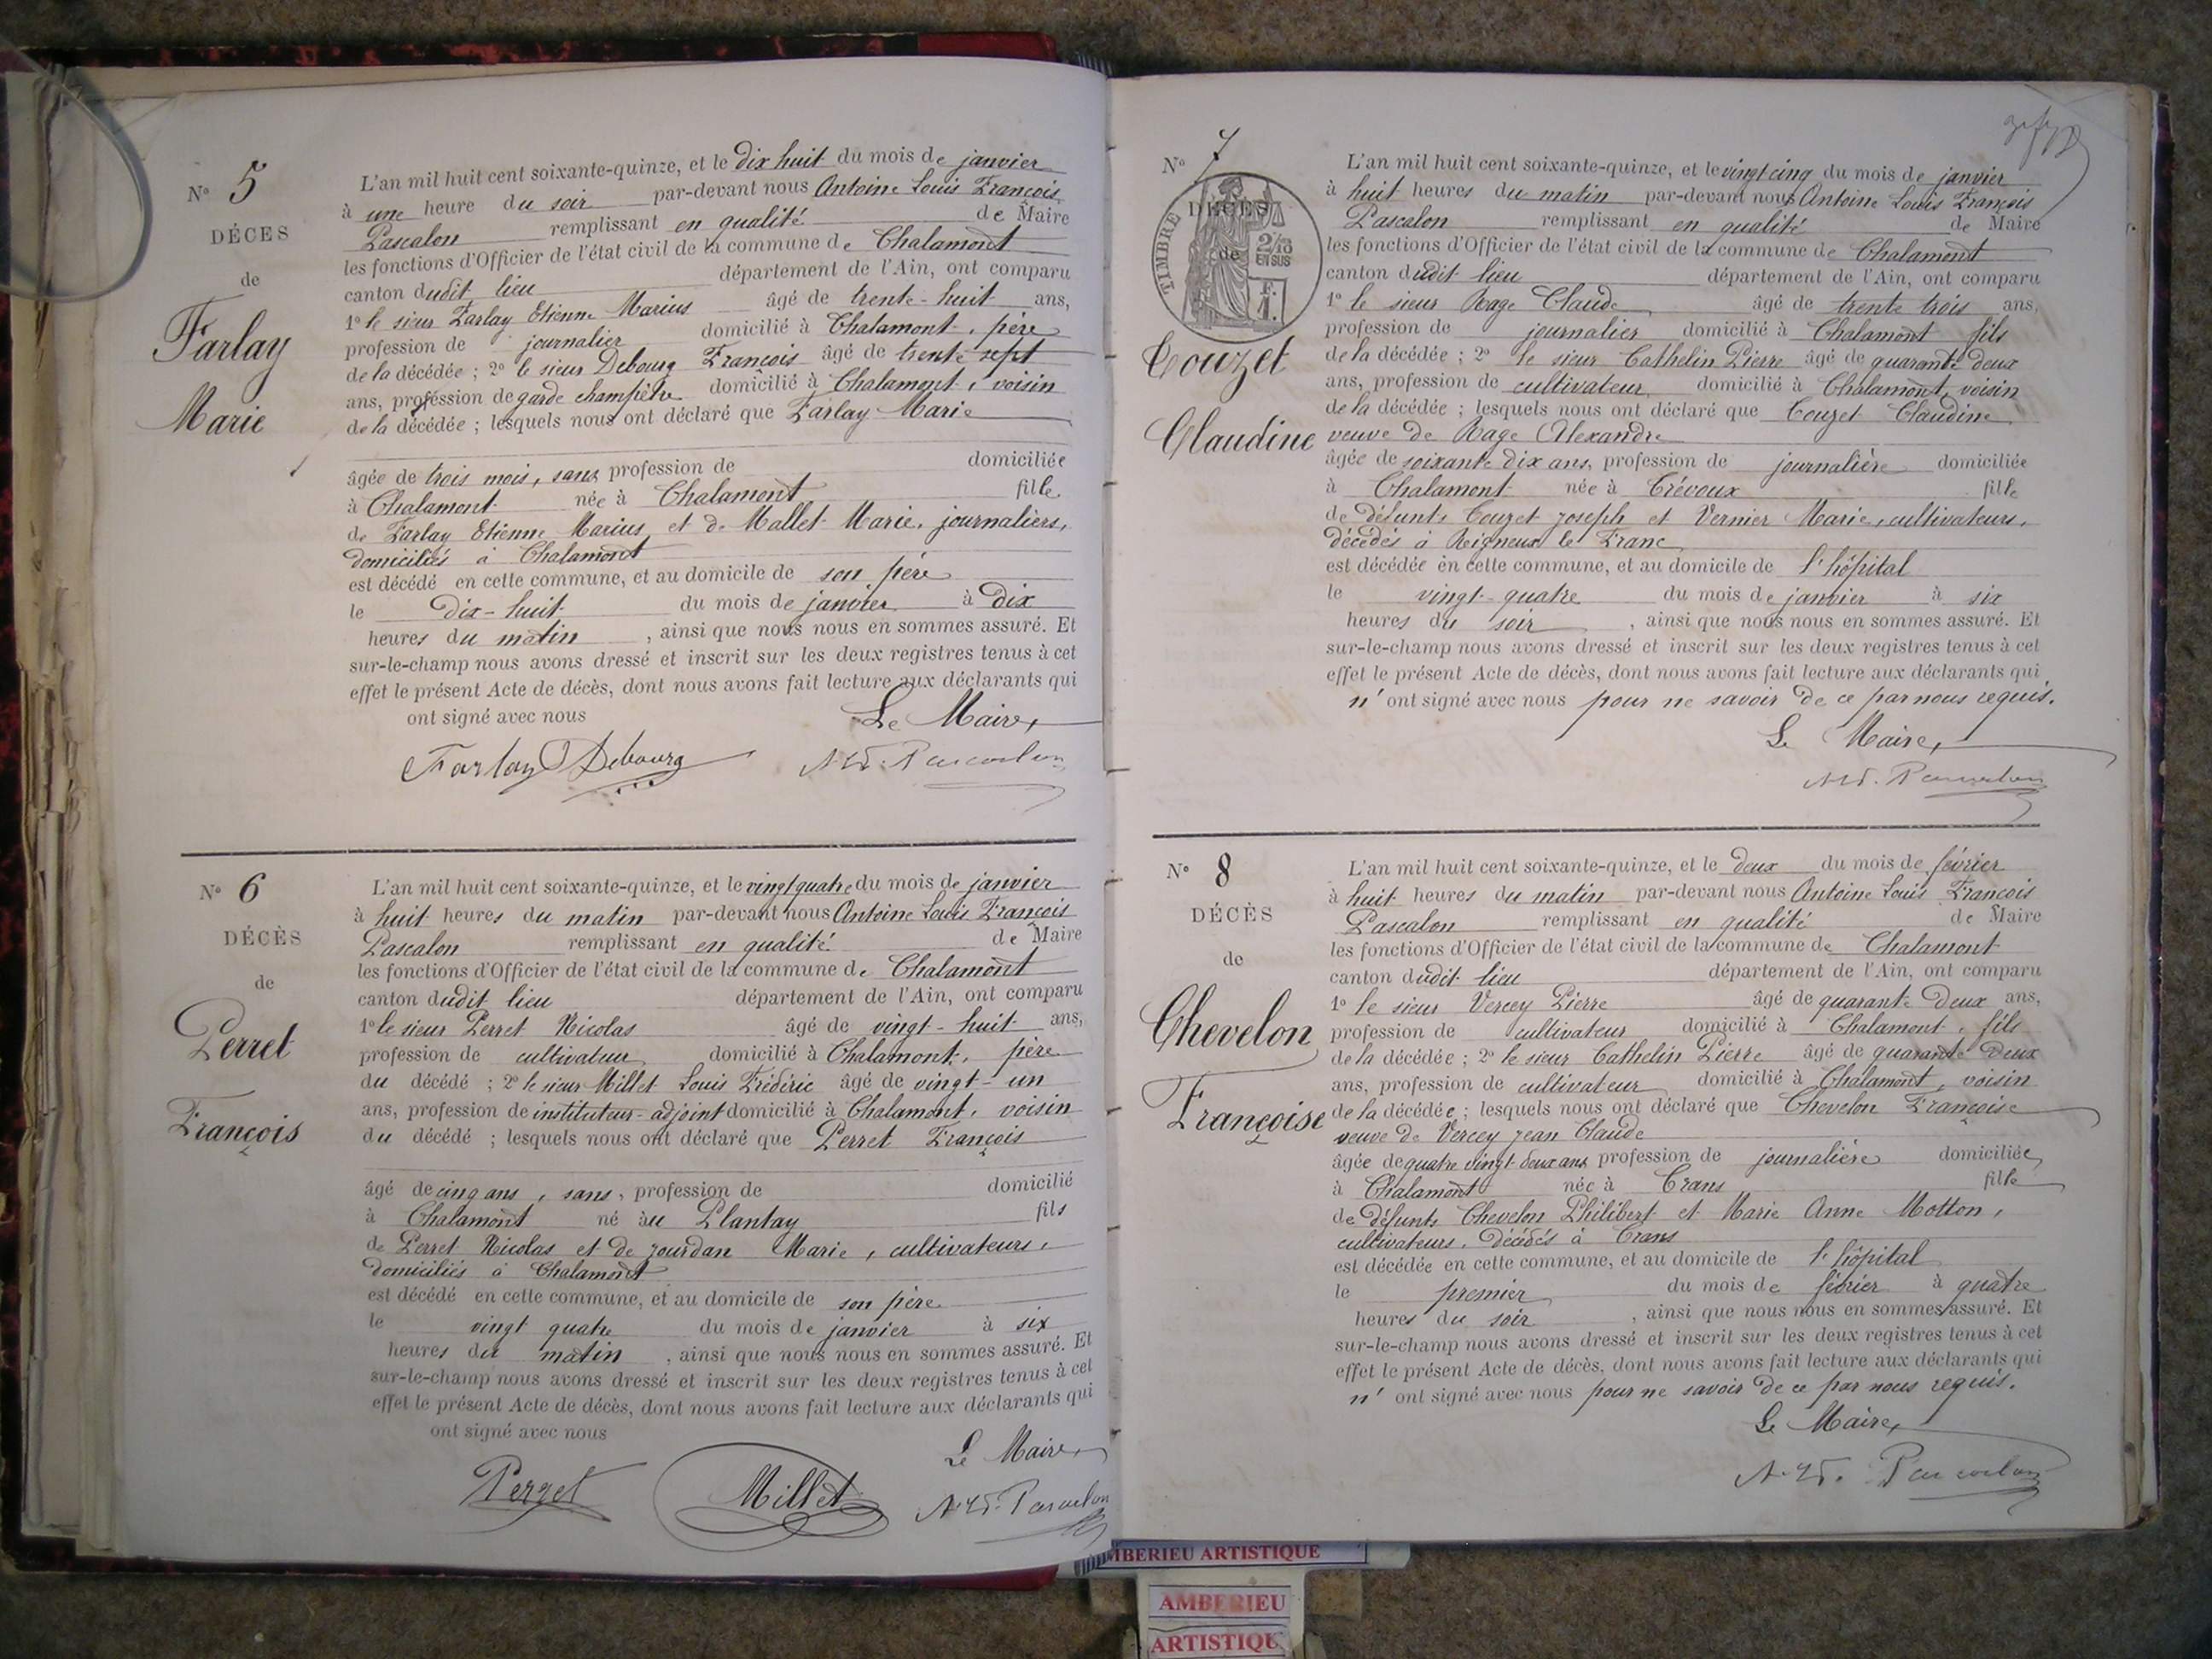 N° 5
DÉCES
de
Farlay
Marie
L'an mil huit cent soixante-quinze, et le dix huit du mois de janvier
à une heure du soir par-devant nous Antoine Louis François
Pascalon remplissant en qualité de Maire
les fonctions d'Officier de l'état civil de la commune de Chalamont
canton dudit lieu département de l'Ain, ont comparu
1° le sieur Farlay Etienne Marius âgé de trente-huit ans,
profession de journalier domicilié à Chalamont, père
de la décédée ; 2° le sieur Debourg François âgé de trente sept
ans, profession de garde champêtre domicilié à Chalamont, voisin
de la décédée ; lesquels nous ont déclaré que Farlay Marie
âgée de trois mois, sans profession de domiciliée
à Chalamont née à Chalamont fille
de Farlay Etienne Marius et de Mallet Marie, journaliers,
domiciliés à Chalamont
est décédé en cette commune, et au domicile de son père
le dix-huit du mois de janvier à dix
heures du matin , ainsi que nous nous en sommes assuré. Et
sur-le-champ nous avons dressé et inscrit sur les deux registres tenus à cet
effet le présent Acte de décès, dont nous avons fait lecture aux déclarants qui
ont signé avec nous Le Maire,
Farlay Debourg Pascalon
N° 6
DÉCÈS
de
Perret
François
L'an mil huit cent soixante-quinze, et le vingt quatre du mois de janvier
à huit heures du matin par-devant nous Antoine Louis François
Pascalon remplissant en qualité de Maire
les fonctions d'Officier de l'état civil de la commune de Chalamont
canton dudit lieu département de l'Ain, ont comparu
1° le sieur Perret Nicolas âgé de vingt-huit ans,
profession de cultivateur domicilié à Chalamont, père
du décédé ; 2° le sieur Millet Louis Frédéric âgé de vingt-un
ans, profession de instituteur-adjoint domicilié à Chalamont, voisin
du décédé ; lesquels nous ont déclaré que Perret François
âgé de cinq ans, sans, profession de domicilié
à Chalamont né au Plantay fils
de Perret Nicolas et de Jourdan Marie, cultivateurs,
domiciliés à Chalamont
est décédé en cette commune, et au domicile de son père
le vingt quatre du mois de janvier à six
heures du matin , ainsi que nous nous en sommes assuré. Et
sur-le-champ nous avons dressé et inscrit sur les deux registres tenus à cet
effet le présent Acte de décès, dont nous avons fait lecture aux déclarants qui
ont signé avec nous
Le Maire,
Perret Millet Pascalon
N° 7
DÉCÈS
de
TIMBRE
2/10
EN SUS
F.
1.
Couzet
Claudine
L'an mil huit cent soixante-quinze, et le vingt cinq du mois de janvier
à huit heures du matin par-devant nous Antoine Louis François
Pascalon remplissant en qualité de Maire
les fonctions d'Officier de l'état civil de la commune de Chalamont
canton dudit lieu département de l'Ain, ont comparu
1° le sieur Rage Claude âgé de trente trois ans,
profession de journalier domicilié à Chalamont fils
de la décédée ; 2° le sieur Cathelin Pierre âgé de quarante deux
ans, profession de cultivateur domicilié à Chalamont, voisin
de la décédée ; lesquels nous ont déclaré que Couzet Claudine
veuve de Rage Alexandre
âgée de soixante dix ans, profession de journalière domiciliée
à Chalamont née à Trévoux fille
de défunts Couzet Joseph et Vernier Marie, cultivateurs,
décédés à Rigneux le Franc
est décédée en cette commune, et au domicile de l'hôpital
le vingt-quatre du mois de janvier à six
heures du soir , ainsi que nous nous en sommes assuré. Et
sur-le-champ nous avons dressé et inscrit sur les deux registres tenus à cet
effet le présent Acte de décès, dont nous avons fait lecture aux déclarants qui
n'ont signé avec nous pour ne savoir de ce par nous requis.
Le Maire,
Pascalon
N° 8
DÉCÈS
de
Chevelon
Françoise
L'an mil huit cent soixante-quinze, et le deux du mois de février
à huit heures du matin par-devant nous Antoine Louis François
Pascalon remplissant en qualité de Maire
les fonctions d'Officier de l'état civil de la commune de Chalamont
canton dudit lieu département de l'Ain, ont comparu
1° le sieur Vercey Pierre âgé de quarante deux ans,
profession de cultivateur domicilié à Chalamont, fils
de la décédée ; 2° le sieur Cathelin Pierre âgé de quarante deux
ans, profession de cultivateur domicilié à Chalamont, voisin
de la décédée ; lesquels nous ont déclaré que Chevelon Françoise
veuve de Vercey Jean Claude
âgée de quatre vingt-deux ans profession de journalière domiciliée
à Chalamont née à Crans fille
de défunts Chevelon Philibert et Marie Anne Motton,
cultivateurs, décédés à Crans
est décédée en cette commune, et au domicile de l'hôpital
le premier du mois de février à quatre
heures du soir , ainsi que nous nous en sommes assuré. Et
sur-le-champ nous avons dressé et inscrit sur les deux registres tenus à cet
effet le présent Acte de décès, dont nous avons fait lecture aux déclarants qui
n'ont signé avec nous pour ne savoir de ce par nous requis.
Le Maire,
Pascalon
MBERIEU ARTISTIQUE
AMBERIEU
ARTISTIQU